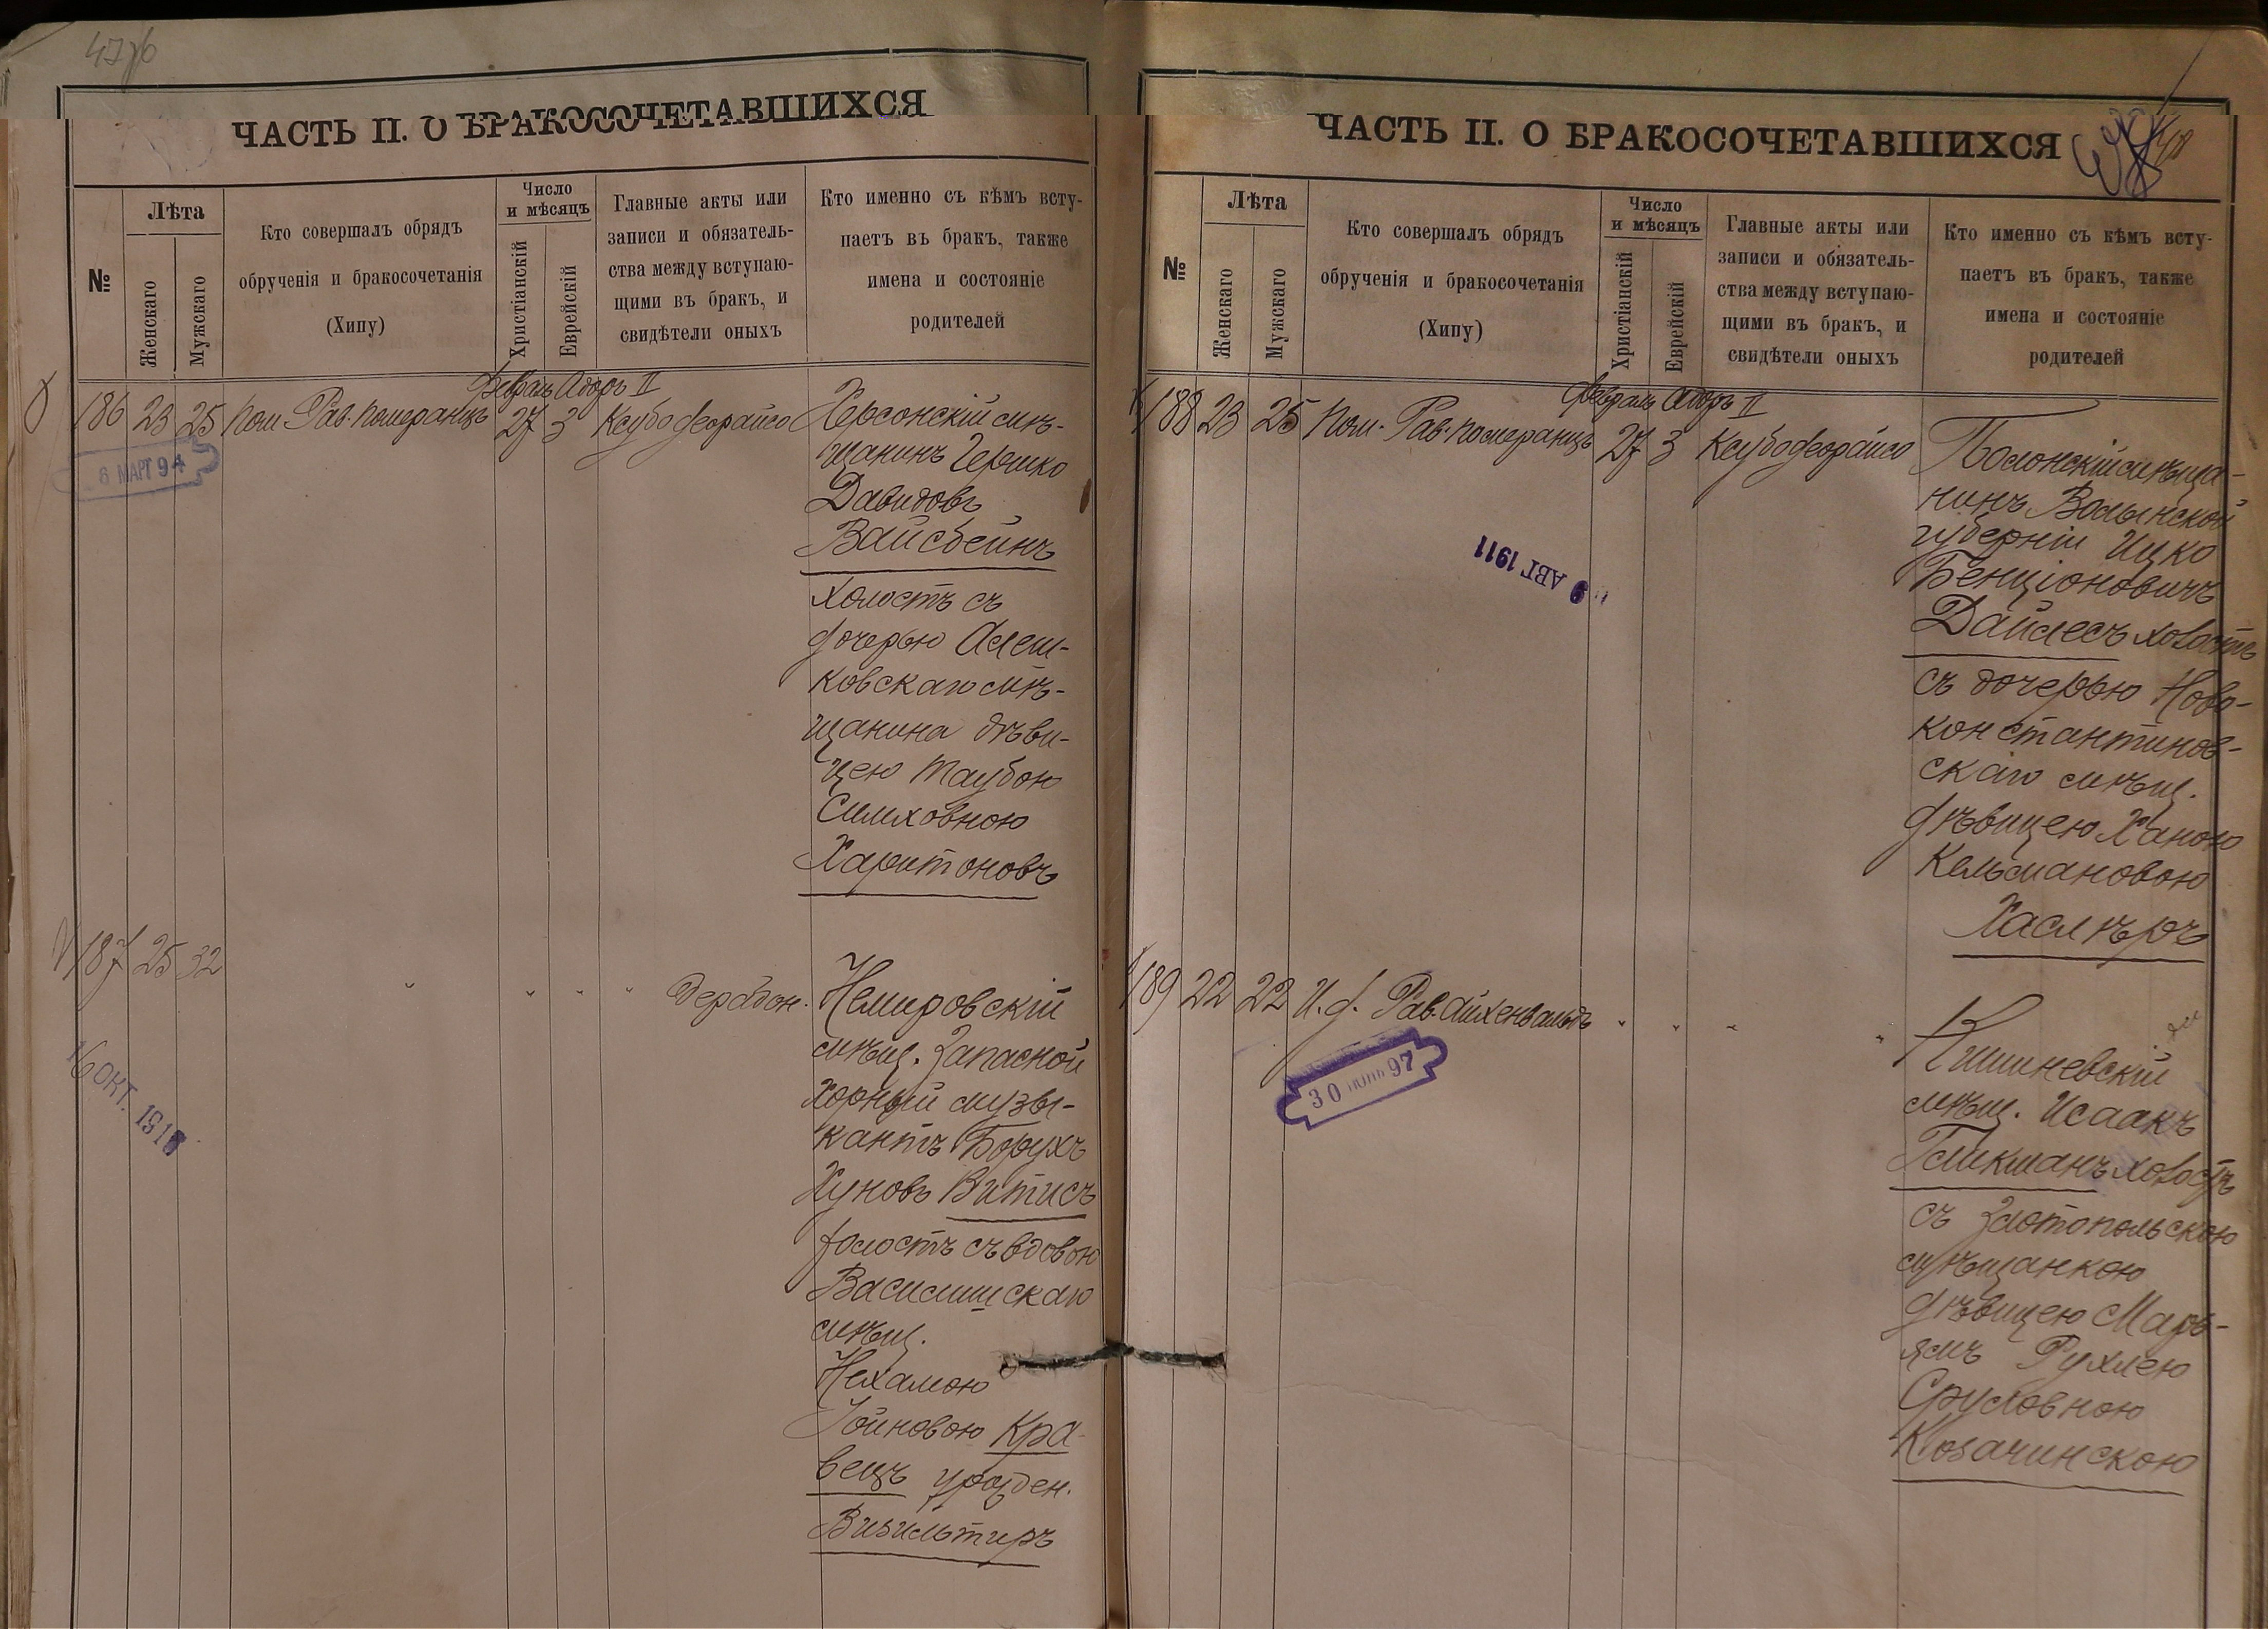 47об
ЧАСТЬ II. О БРАКОСОЧЕТАВШИХСЯ
№
Лѣта
Женскаго
Мужскаго
Кто совершалъ обрядъ
обрученія и бракосочетанія
(Хипу)
Число
и мѣсяцъ
Христіанскій
Еврейскій
Главные акты или
записи и обязатель-
ства между вступаю-
щими въ бракъ, и
свидѣтели оныхъ
Кто именно съ кѣмъ всту-
паетъ въ бракъ, также
имена и состояніе
родителей
Февраль Адоръ II
186 23 25 Пом. Рав. Померанцъ 27 3 Ксубо деорайсо
6 МАРТ 94
Херсонскій мѣ-
щанинъ Гершко
Давидовъ
Вайсбейнъ
холостъ съ
дочерью Алеш-
ковскаго мѣ-
щанина дѣви-
цею Таубою
Симховною
Харитоновъ
187 25 32 " " " " дерабон.
16 ОКТ. 191
Немировскій
мѣщ. запасной
хорный музы-
кантъ Борухъ
Хуновъ Витисъ
холостъ съ вдовою
Василишскаго
мѣщ.
Нехамою
Іойновою Кра-
вецъ урожден.
Визильтиръ
ЧАСТЬ II. О БРАКОСОЧЕТАВШИХСЯ
48
№
Лѣта
Женскаго
Мужскаго
Кто совершалъ обрядъ
обрученія и бракосочетанія
(Хипу)
Число
и мѣсяцъ
Христіанскій
Еврейскій
Главные акты или
записи и обязатель-
ства между вступаю-
щими въ бракъ, и
свидѣтели оныхъ
Кто именно съ кѣмъ всту-
паетъ въ бракъ, также
имена и состояніе
родителей
Февраль Адоръ II
188 23 25 Пом. Рав. Померанцъ 27 3 Ксубо деорайсо
9 АВГ 1911
Полонскій мѣща-
нинъ Волынской
губерніи Ицко
Бенціоновичъ
Дайлесъ холостъ
съ дочерью Ново-
константинов-
скаго мѣщ.
дѣвицею Ханою
Кельмановою
Хаслѣръ
189 22 22 И. д. Рав. Айхенвальдъ " " " "
30 ІЮНЯ 97
Кишиневскій
мѣщ. Исаакъ
Гликманъ холостъ
съ Златопольскою
мѣщанкою
дѣвицею Марь-
ямъ Рухлею
Сруловною
Козачинскою